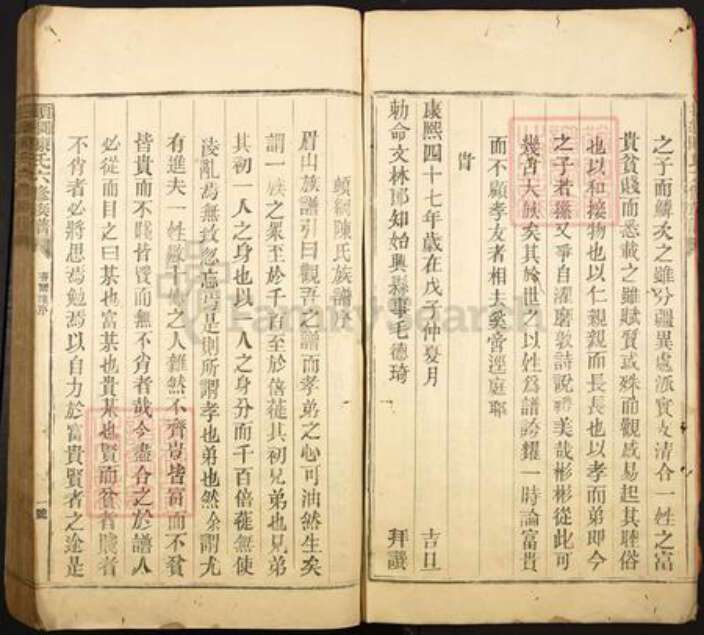 之子而鱗炎之雖分疆異處派實友清合一姓之富
貴貧賤而悉載之雖賦質或殊而觀感易起其睦俗
也以和接物也以仁親親而長長也以孝而弟即今
之子若孫又爭自濯磨敦詩說禮美哉彬彬從此可
幾古大族矣其於世之以姓為譜誇耀一時論富貴
而不顧孝友者相夫奚啻逕庭耶
旹
康熙四十七年歲在戊子仲夏月 吉旦
勅命文林郎知始興縣事毛德琦 拜譔
陳氏族譜序
眉山族譜引曰觀吾之譜而孝弟之心可油然生矣
謂一族之衆至於千百至於倍蓰其初兄弟也兄弟
其初一人之身也以一人之身分而千百倍蓰無使
淩亂焉無致忽忘焉是則所謂孝也弟也然余謂尤
有進夫一姓數十世之人雜然不齊豈皆富而不貧
皆貴而不賤皆賢而無不肖者哉今盡合之於譜人
必從而目之曰某也富某也貴某也賢而貧者賤者
不肖者必將思焉勉焉以自力於富貴賢者之途是
陳氏六修族譜
一號
FamilySearch